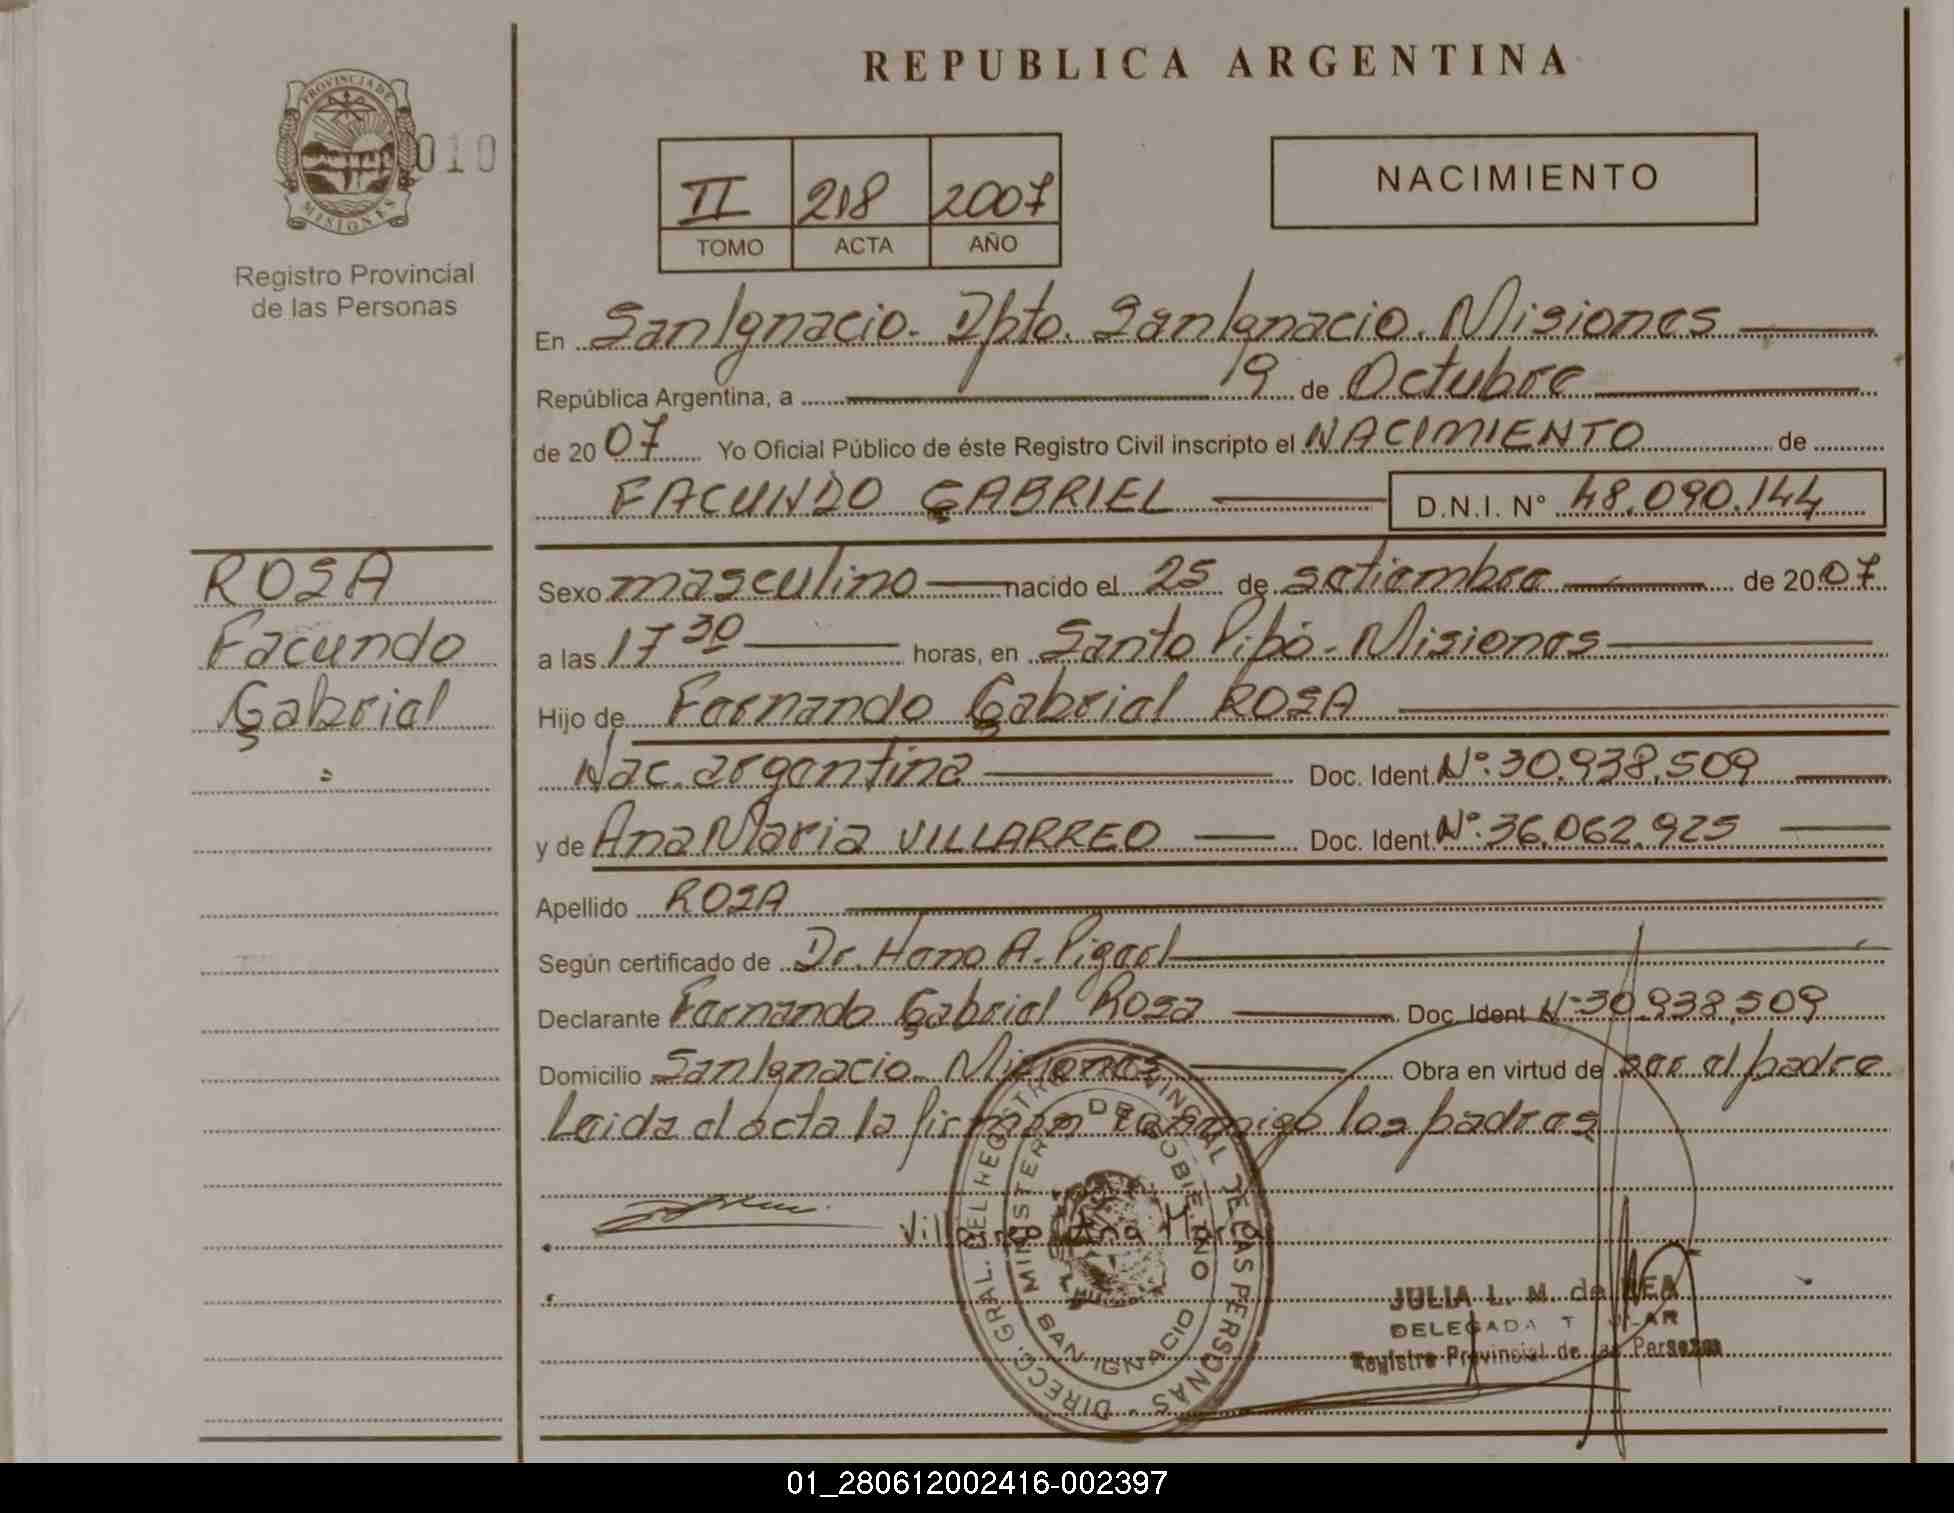 REPUBLICA ARGENTINA
PROVINCIA DE MISIONES
010
Registro Provincial
de las Personas
II 218 2007
TOMO ACTA AÑO
NACIMIENTO
En San Ignacio. Dpto. San Ignacio. Misiones
República Argentina, a 19 de Octubre
de 2007 Yo Oficial Público de éste Registro Civil inscripto el NACIMIENTO de
FACUNDO GABRIEL D.N.I. N° 48.090.144
ROSA
Facundo
Gabriel
Sexo masculino nacido el 25 de setiembre de 2007
a las 17 30 horas, en Santo Pipó - Misiones
Hijo de Fernando Gabriel ROSA
Nac. argentina Doc. Ident. N°. 30.938.509
y de Ana Maria VILLARREO Doc. Ident. N°. 36.062.925
Apellido ROSA
Según certificado de Dr. Hano A. Pigerl
Declarante Fernando Gabriel Rosa Doc. Ident N° 30.938.509
Domicilio San Ignacio - Misiones Obra en virtud de ser el padre
Leida el acta la firman conmigo los padres
Villarreo Ana Maria
DIRECC. GRAL. DEL REGISTRO PROVINCIAL DE LAS PERSONAS
MINISTERIO DE GOBIERNO
SAN IGNACIO
JULIA L. M. de
DELEGADA TITULAR
Registro Provincial de las Personas
01_280612002416-002397